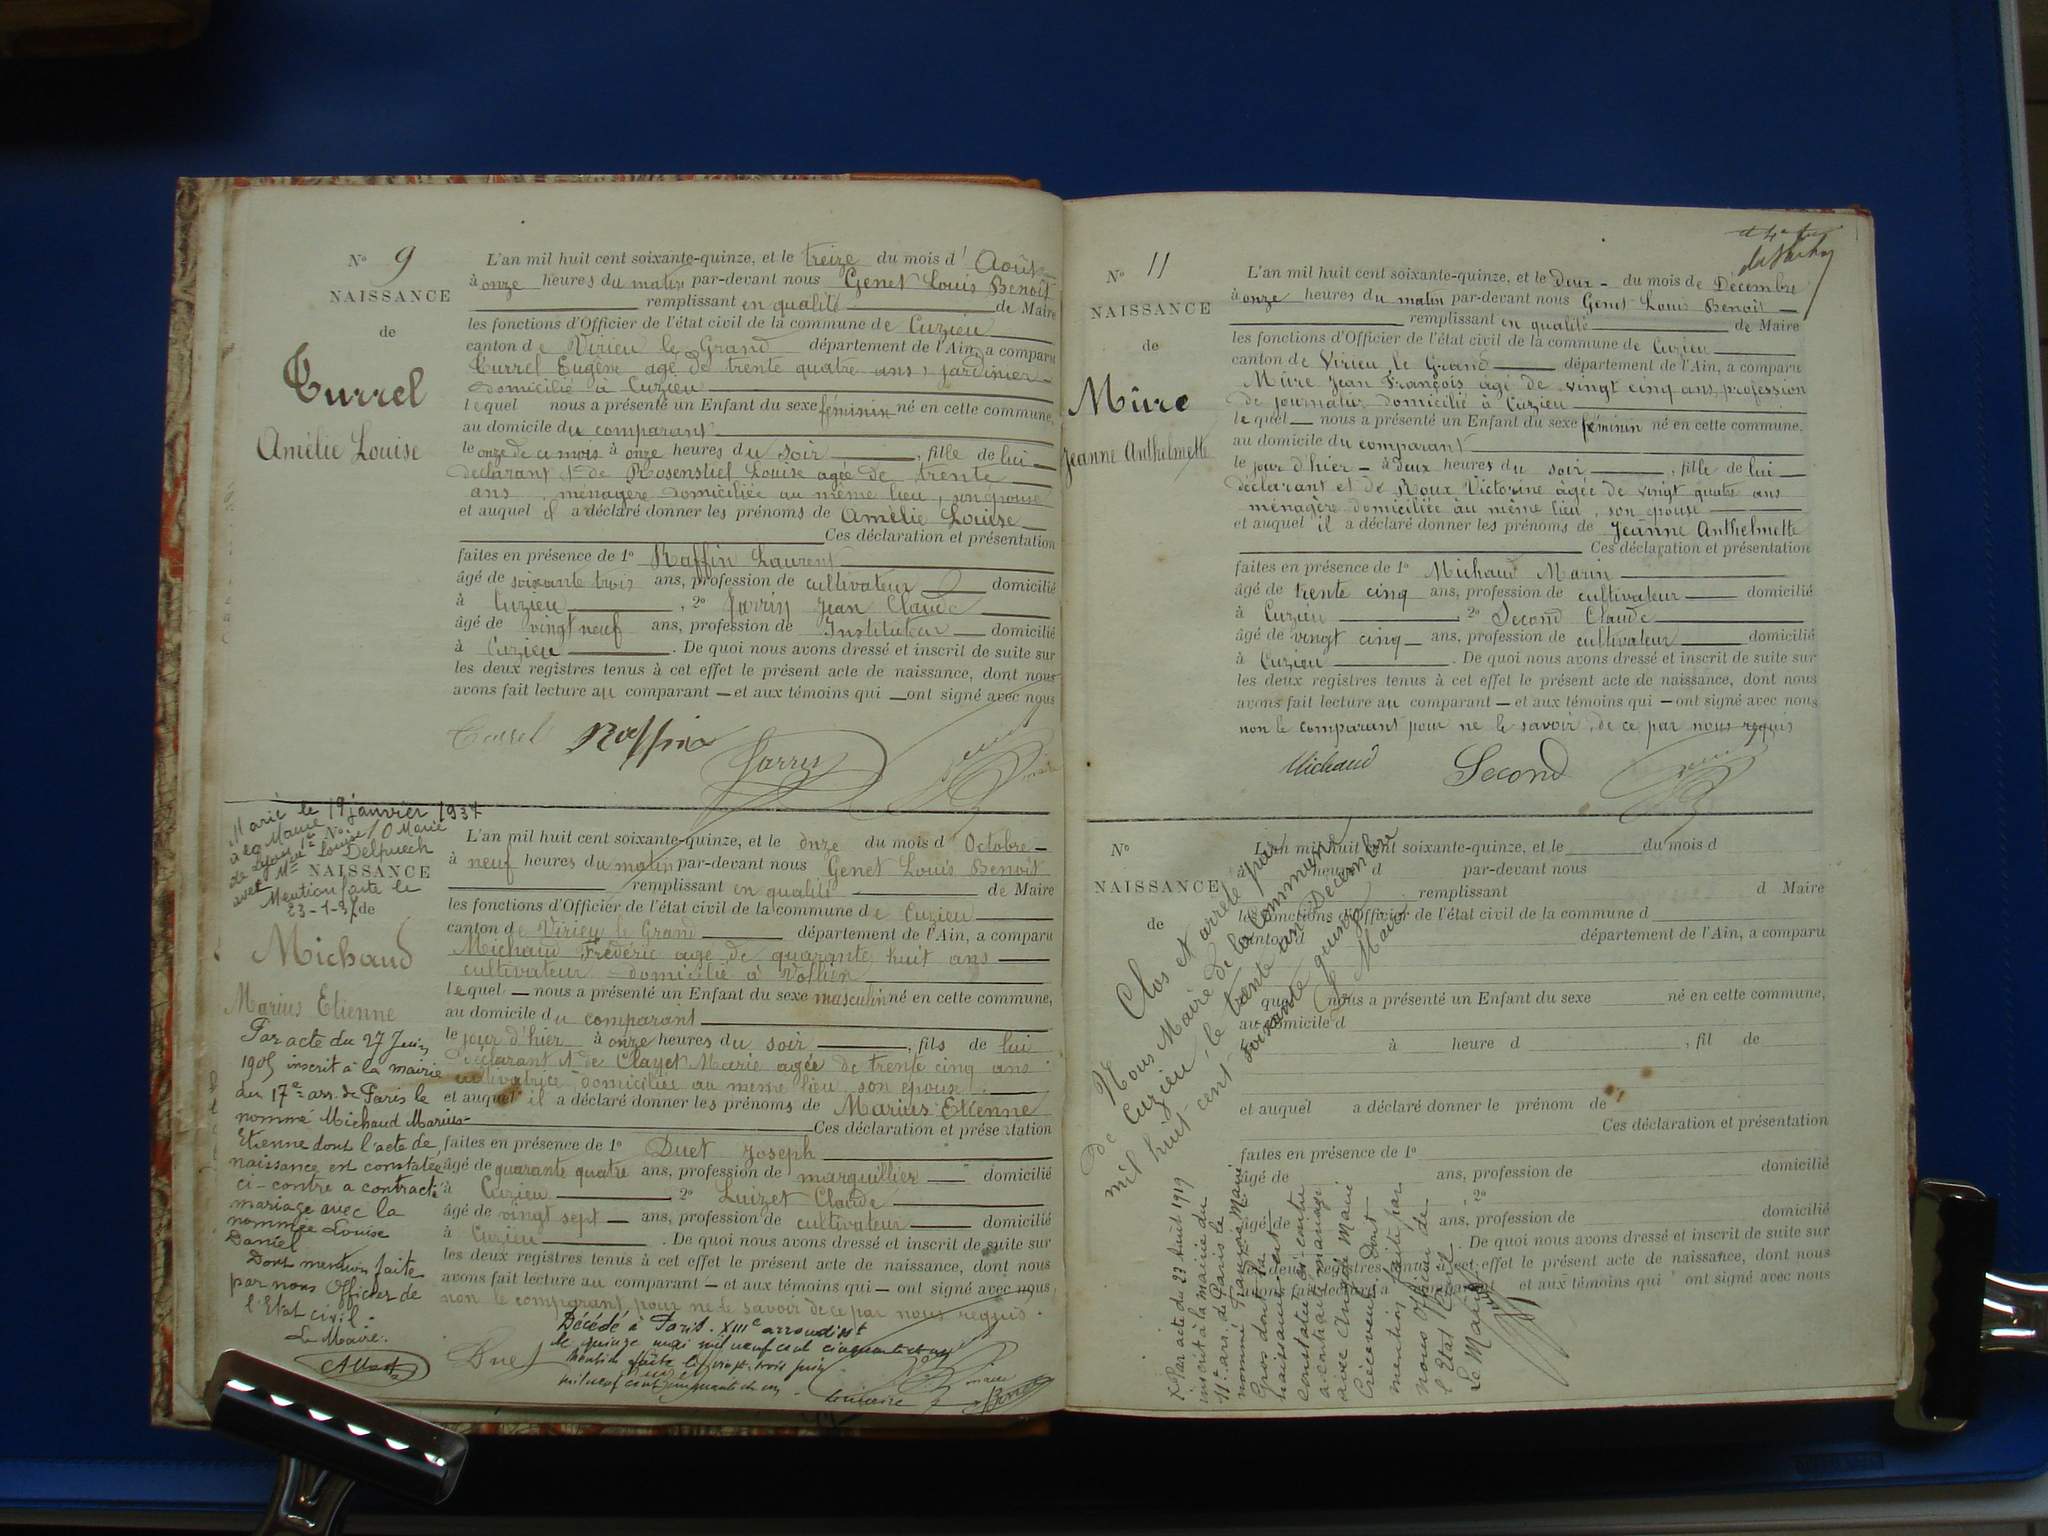 N° 9
NAISSANCE
de
Turrel
Amélie Louise
L'an mil huit cent soixante-quinze, et le treize du mois d'Août
à onze heures du matin par-devant nous Genet Louis Benoît
remplissant en qualité de Maire
les fonctions d'Officier de l'état civil de la commune de Cuzieu
canton de Virieu le Grand département de l'Ain, a comparu
Turrel Eugène agé de trente quatre ans, jardinier
domicilié à Cuzieu
lequel nous a présenté un Enfant du sexe féminin né en cette commune,
au domicile du comparant
le onze de ce mois à onze heures du soir, fille de lui
déclarant et de Rosenstiel Louise agée de trente
ans, ménagère domiciliée au même lieu, son épouse
et auquel il a déclaré donner les prénoms de Amélie Louise
Ces déclaration et présentation
faites en présence de 1° Raffin Laurent
âgé de soixante trois ans, profession de cultivateur domicilié
à Cuzieu, 2° Jarrin Jean Claude
âgé de vingt neuf ans, profession de Instituteur domicilié
à Cuzieu. De quoi nous avons dressé et inscrit de suite sur
les deux registres tenus à cet effet le présent acte de naissance, dont nous
avons fait lecture au comparant — et aux témoins qui — ont signé avec nous
Turrel Raffin Jarrin
Marié le 19 janvier 1937
à la Mairie
de Lyon
avec Mme Louise Marie
Delpuech
NAISSANCE
Mention faite le
23-1-37
de
Michaud
Marius Etienne
Par acte du 27 Juin
1905 inscrit à la mairie
du 17e arr. de Paris le
nommé Michaud Marius-
Etienne dont l'acte de
naissance est constatée
ci-contre a contracté
mariage avec la
nommée Louise
Daniel
Dont mention faite
par nous Officier de
l'Etat civil.
Le Maire.
L'an mil huit cent soixante-quinze, et le onze du mois d Octobre
à neuf heures du matin par-devant nous Genet Louis Benoît
remplissant en qualité de Maire
les fonctions d'Officier de l'état civil de la commune de Cuzieu
canton de Virieu le Grand département de l'Ain, a comparu
Michaud Frédéric agé de quarante huit ans
cultivateur domicilié à Vollien
lequel — nous a présenté un Enfant du sexe masculin né en cette commune,
au domicile du comparant
le jour d'hier à onze heures du soir, fils de lui
déclarant et de Clayet Marie agée de trente cinq ans
cultivatrice, domiciliée au même lieu son épouse
et auquel il a déclaré donner les prénoms de Marius Etienne
Ces déclaration et présentation
faites en présence de 1° Duet Joseph
âgé de quarante quatre ans, profession de marguillier domicilié
à Cuzieu 2° Luizet Claude
âgé de vingt sept — ans, profession de cultivateur domicilié
à Cuzieu. De quoi nous avons dressé et inscrit de suite sur
les deux registres tenus à cet effet le présent acte de naissance, dont nous
avons fait lecture au comparant — et aux témoins qui — ont signé avec nous,
non le comparant pour ne le savoir de ce par nous requis.
Duet
Décédé à Paris. XIIIe arrondisst
le quinze mai mil neuf cent cinquante et un
Mention faite le trois juin
mil neuf cent cinquante et un
N° 11
NAISSANCE
de
Mûre
Jeanne Anthelmette
L'an mil huit cent soixante-quinze, et le deux - du mois de Décembre
à onze heures du matin par-devant nous Genet Louis Benoît —
remplissant en qualité de Maire
les fonctions d'Officier de l'état civil de la commune de Cuzieu
canton de Virieu le Grand département de l'Ain, a comparu
Mûre Jean François agé de vingt cinq ans, profession
de journalier domicilié à Cuzieu
lequel — nous a présenté un Enfant du sexe féminin né en cette commune,
au domicile du comparant
le jour d'hier - à deux heures du soir, fille de lui —
déclarant et de Roux Victorine âgée de vingt quatre ans
ménagère domiciliée au même lieu, son épouse
et auquel il a déclaré donner les prénoms de Jeanne Anthelmette
Ces déclaration et présentation
faites en présence de 1° Michaud Marin
âgé de trente cinq ans, profession de cultivateur domicilié
à Cuzieu 2° Second Claude
âgé de vingt cinq — ans, profession de cultivateur domicilié
à Cuzieu. De quoi nous avons dressé et inscrit de suite sur
les deux registres tenus à cet effet le présent acte de naissance, dont nous
avons fait lecture au comparant — et aux témoins qui — ont signé avec nous
non le comparant pour ne le savoir, de ce par nous requis
Michaud Second
N°
NAISSANCE
de
L'an mil huit cent soixante-quinze, et le du mois d
heure d par-devant nous
remplissant d Maire
les fonctions d'Officier de l'état civil de la commune d
canton d département de l'Ain, a comparu
quel nous a présenté un Enfant du sexe né en cette commune,
au domicile d
à heure d, fil de
et auquel a déclaré donner le prénom de
Ces déclaration et présentation
faites en présence de 1°
âgé de ans, profession de domicilié
2°
âgé de ans, profession de domicilié
. De quoi nous avons dressé et inscrit de suite sur
les deux registres tenus à cet effet le présent acte de naissance, dont nous
et aux témoins qui ont signé avec nous
Clos et arrêté par
Nous Maire de la commune
de Cuzieu, le trente un Décembre
mil huit cent soixante quinze
Le Maire
Par acte du 23 Août 1919
inscrit à la mairie du
11e arr. de Paris le
nommé François Marie
Gros dont la
naissance est
constatée ci-contre
a contracté mariage
avec Angèle Marie
dont
mention faite par
Nous Officier de
l'Etat Civil
Le Maire